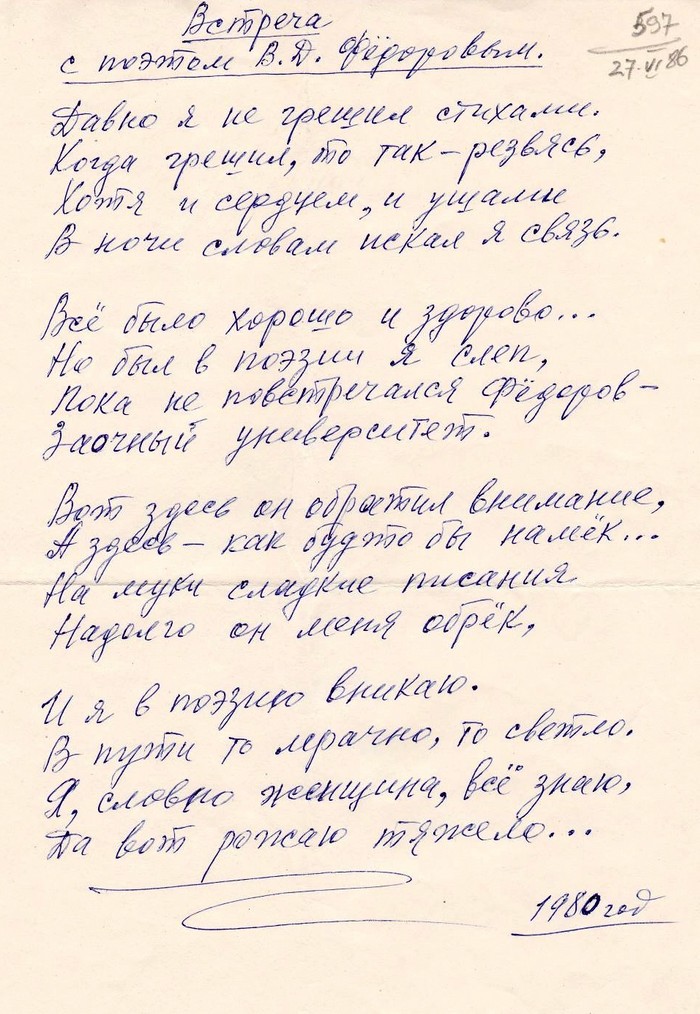 Встреча
с поэтом В. Д. Фёдоровым.
597
27.VI 86
Давно я не грешил стихами.
Когда грешил, то так – резвясь,
Хотя и сердцем, и ушами
В ночи словам искал я связь.
Всё было хорошо и здорово...
Но был в поэзии я слеп,
Пока не повстречался Фёдоров –
Заочный университет.
Вот здесь он обратил внимание,
А здесь – как будто бы намёк...
На муки сладкие писания
Надолго он меня обрёк,
И я в поэзию вникаю.
В пути то мрачно, то светло.
Я, словно женщина, всё знаю,
Да вот рожаю тяжело...
1980 год